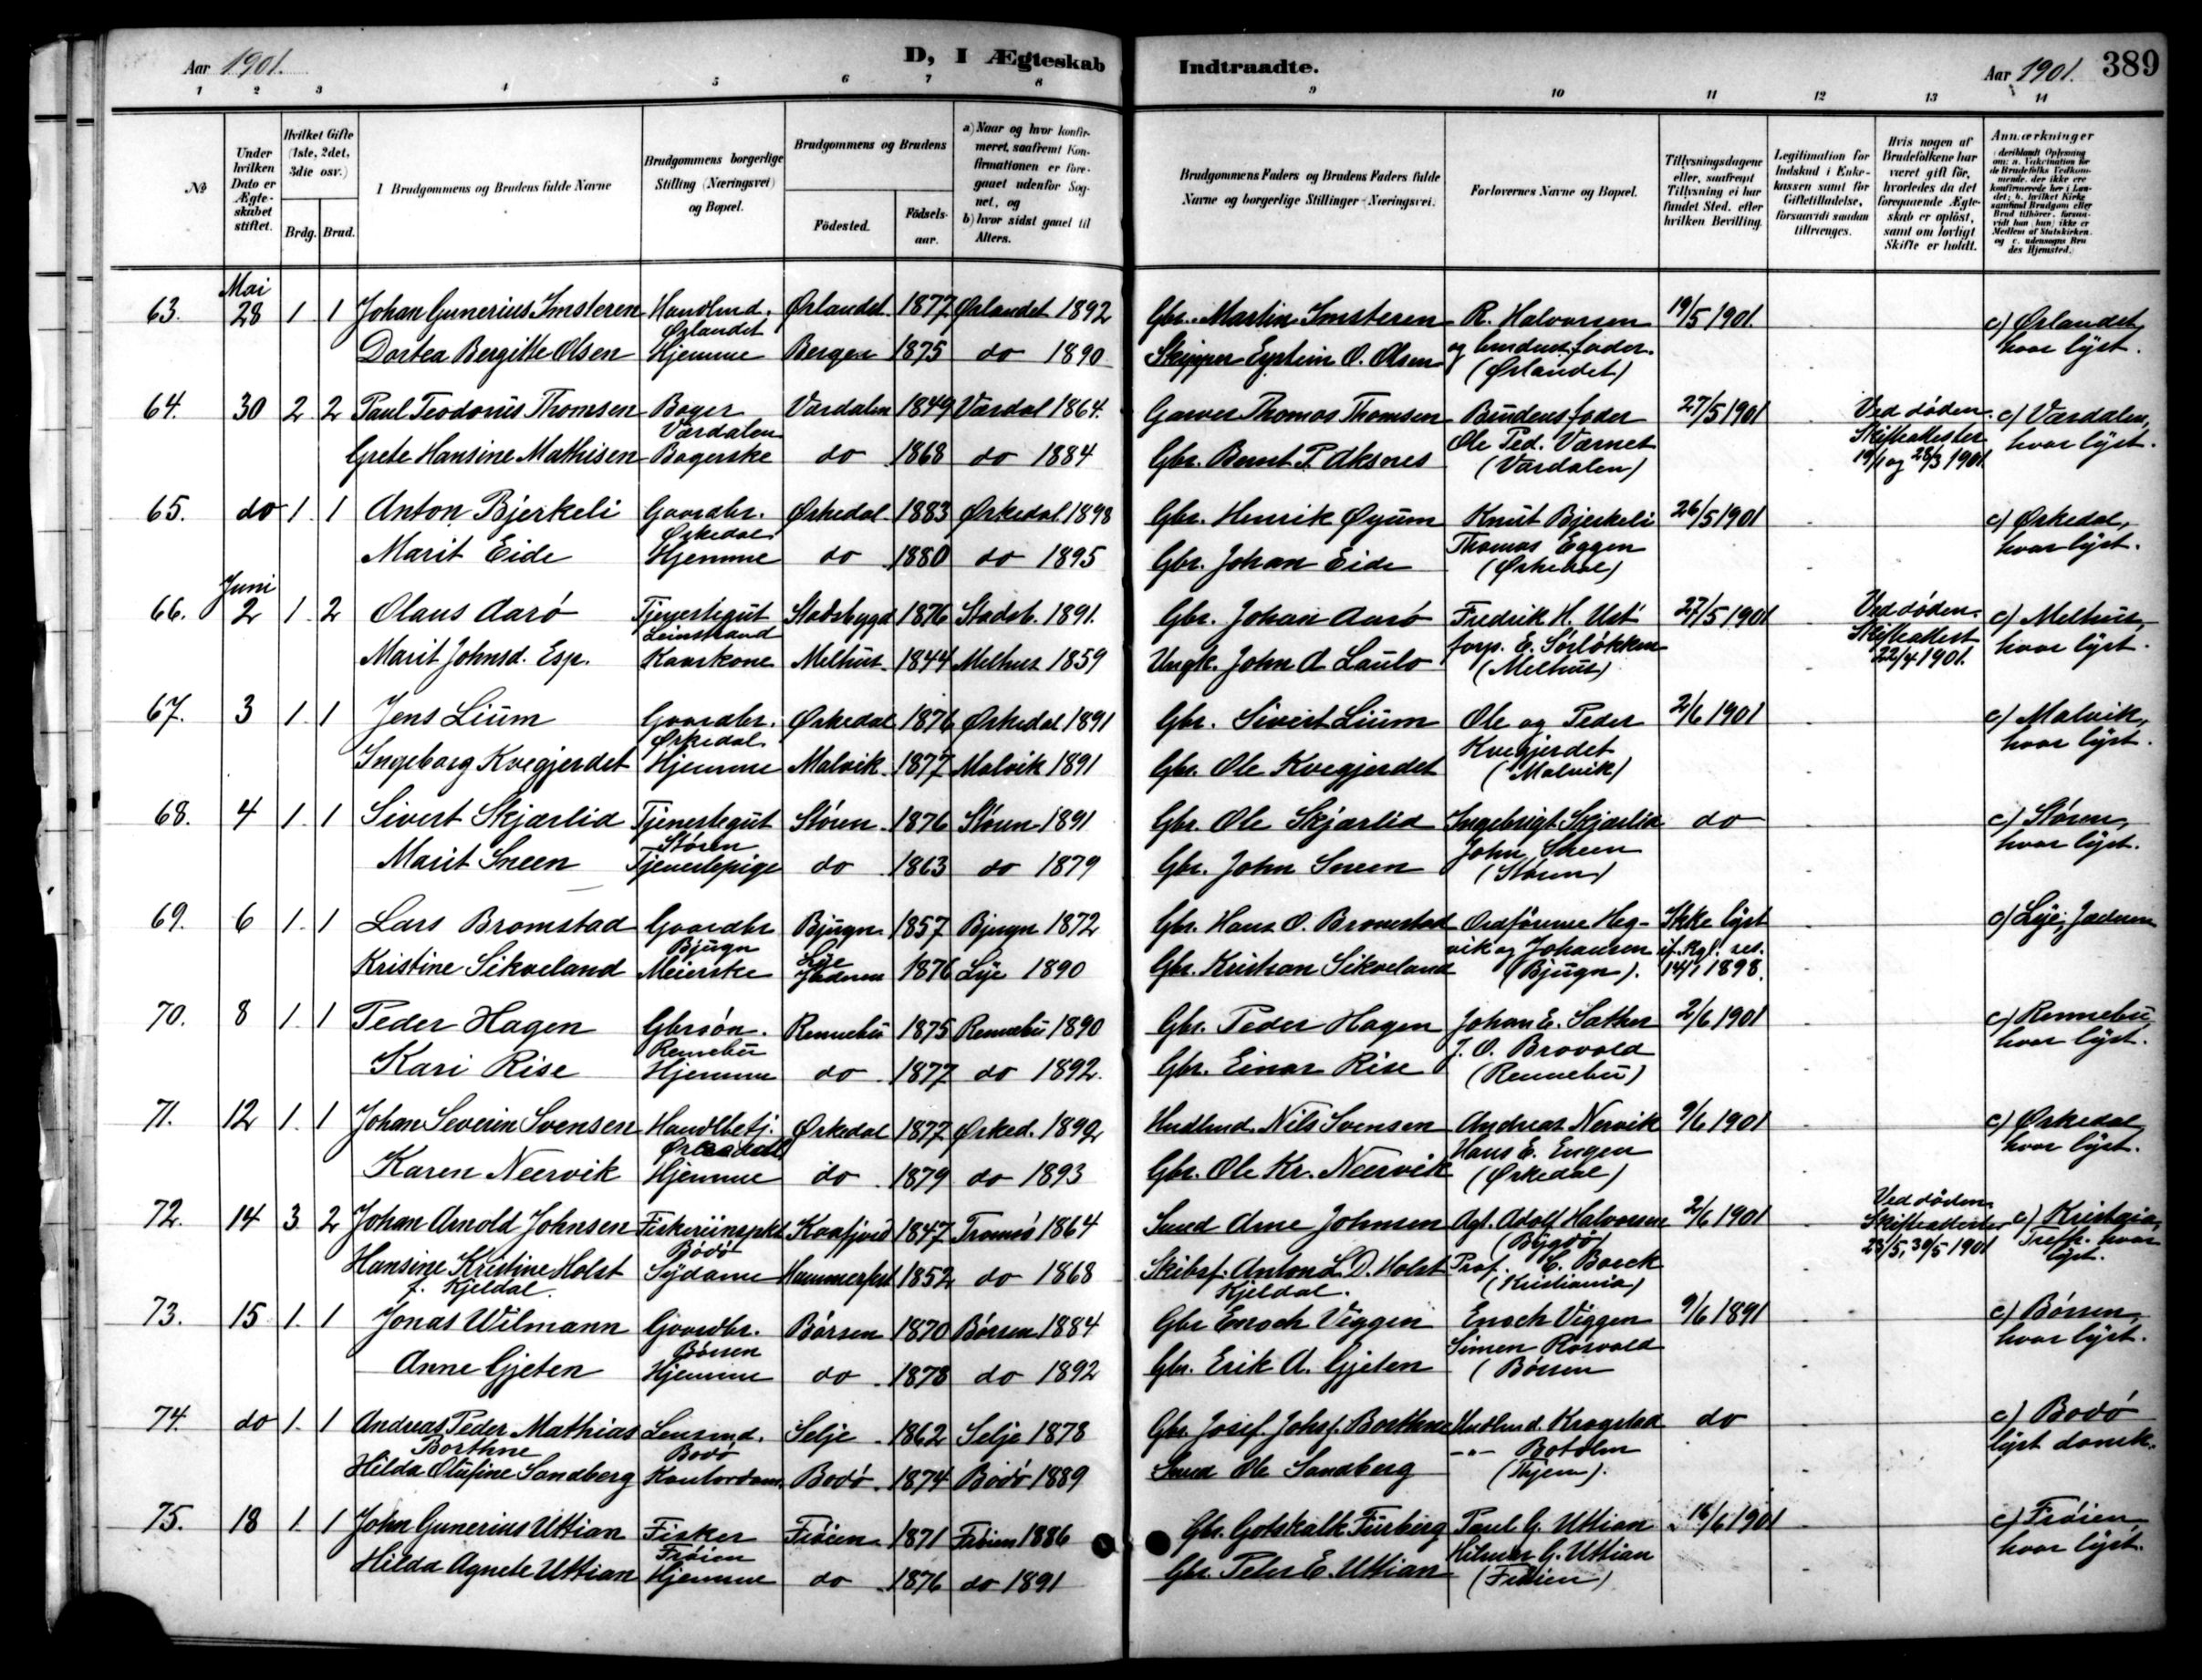 Aar 1901.
D, I Ægteskab Indtraadte.
Aar 1901. 389
1 2 3 4 5 6 7 8 9 10 11 12 13 14
№
Under hvilken Dato er Ægteskabet stiftet.
Hvilket Gifte (1ste, 2det, 3die osv.)
Brdg. Brud.
1 Brudgommens og Brudens fulde Navne
Brudgommens borgerlige Stilling (Næringsvei) og Bopæl.
Brudgommens og Brudens
Födested. Födselsaar.
a) Naar og hvor konfirmeret, saafremt Konfirmationen er foregaaet udenfor Sognet, og
b) hvor sidst gaaet til Alters.
Brudgommens Faders og Brudens Faders fulde Navne og borgerlige Stillinger (Næringsvei.
Forlovernes Navne og Bopæl.
Tillysningsdagene eller, saafremt Tillysning ei har fundet Sted, efter hvilken Bevilling.
Legitimation for Indskud i Enkekassen samt for Giftetilladelse, forsaavidt saadan tiltrænges.
Hvis nogen af Brudefolkene har været gift för, hvorledes da det foregaaende Ægteskab er oplöst, samt om lovligt Skifte er holdt.
Anmærkninger
Mai
63. 28 1 1 Johan Gunerius Imsteren Handlmd. Ørlandet 1877 Ørlandet 1892 Gbr. Martin Imsteren R. Halvorsen 19/5 1901. c) Ørlandet,
Ørlandet og brudens fader. hvor lyst.
Dortea Bergitte Olsen Hjemme Bergen 1875 do 1890 Skipper Eystein O. Olsen (Ørlandet)
64. 30 2 2 Paul Teodorus Thomsen Bager Værdalen 1849 Værdal 1864. Garver Thomas Thomsen Brudens fader 27/5 1901 Ved döden. c) Værdalen,
Værdalen Ole Ped.Værnet Skifteattester hvor lyst.
Grete Hansine Mathisen Bagerske do 1868 do 1884 Gbr. Bernt P. Aksnes (Værdalen) 19/1 og 28/3 1901
65. do 1 1 Anton Bjerkeli Gaardbr. Ørkedal 1883 Ørkedal 1898 Gbr. Henrik Øyum Knut Bjerkeli 26/5 1901 c) Ørkedal,
Ørkedal Thomas Eggen hvor lyst.
Marit Eide Hjemme do 1880 do 1895 Gbr. Johan Eide (Ørkedal)
Juni
66. 2 1 2 Olaus Aarö Tjenestegut Stadsbygd 1876 Stadsb. 1891. Gbr. Johan Aarö Fredrik H. Ust 27/5 1901 Ved döden. c) Melhus,
Leinstrand forp. E. Sörlökken Skifteattest hvor lyst.
Marit Johnsd. Esp. Kaarkone Melhus 1844 Melhus 1859 Ungk. John A Laulo (Melhus) 22/4 1901.
67. 3 1 1 Jens Lium Gaardbr. Ørkedal 1876 Ørkedal 1891 Gbr. Sivert Lium Ole og Peder 2/6 1901 c) Malvik,
Ørkedal Kvegjerdet hvor lyst.
Ingeborg Kvegjerdet Hjemme Malvik 1877 Malvik 1891 Gbr. Ole Kvegjerdet (Malvik)
68. 4 1 1 Sivert Skjærlid Tjenestegut Stören 1876 Stören 1891 Gbr. Ole Skjærlid Ingebrigt Skjærlid do c) Stören,
Stören John Sneen hvor lyst.
Marit Sneen Tjenestepige do 1863 do 1879 Gbr. John Sneen (Stören)
69. 6 1 1 Lars Bromstad Gaardbr Bjugn 1857 Bjugn 1872 Gbr. Hans O. Bromstad Ordförerne Heg- Ikke lyst c) Lye, Jæderen
Bjugn Lye vik og Johansen if. Kgl. res.
Kristine Sikveland Meierske Jæderen 1876 Lye 1890 Gbr. Kristian Sikveland (Bjugn). 14/1 1898.
70. 8 1 1 Peder Hagen Gbrsön. Rennebu 1875 Rennebu 1890 Gbr. Peder Hagen Johan E. Sæther 2/6 1901 c) Rennebu
Rennebu J. O. Brovold hvor lyst.
Kari Rise Hjemme do 1877 do 1892. Gbr. Einar Rise (Rennebu)
71. 12 1 1 Johan Severin Svensen Handlbetj. Ørkedal 1877 Ørked. 1892 Hndlmd. Nils Svensen Andreas Nervik 9/6 1901 c) Ørkedal
Hans E. Engen hvor lyst.
Karen Neervik Hjemme do 1879 do 1893 Gbr. Ole Kr. Neervik (Ørkedal)
72. 14 3 2 Johan Arnold Johnsen Fiskeriinspkt Kaafjord 1847 Tromsö 1864 Smed Arne Johnsen Agt. Adolf Halvorsen 2/6 1901 Ved döden c) Kristania,
Bodö (Bygdö) Skifteattester Trefk. hvor
Hansine Kristine Holst Sydame Hammerfest 1852 do 1868 Skibsf. Anton L. D. Holst Prof. C. Boeck 23/5, 30/5 1901 lyst.
f. Kjeldal. Kjeldal. (Kristiania)
73. 15 1 1 Jonas Wilmann Gaardbr. Börsen 1870 Börsen 1884 Gbr Enoch Viggen Enoch Viggen 9/6 1891 c) Börsen,
Börsen Simen Rösvold hvor lyst.
Anne Gjeten Hjemme do 1878 do 1892 Gbr. Erik A. Gjeten (Börsen
74. do 1 1 Andreas Peder Mathias Lensmd. Selje 1862 Selje 1878 Gbr Josef Johsf. Borthne Hndlmd. Krogstad do c) Bodö
Borthne Bodö -"- Botolm lyst
Hilda Olufine Sandberg Kontordame Bodö 1874 Bodö 1889 Smed Ole Sandberg (Thjem).
75. 18 1 1 John Gunerius Uttian Fisker Fröien 1871 Fröien 1886 Gbr. Gotskalk Furberg Paul G. Uttian 16/6 1901 c) Fröien
Fröien Hilmar G. Uttian hvor lyst.
Hilda Agnete Uttian Hjemme do 1876 do 1891 Gbr. Peter E. Uttian (Fröien)